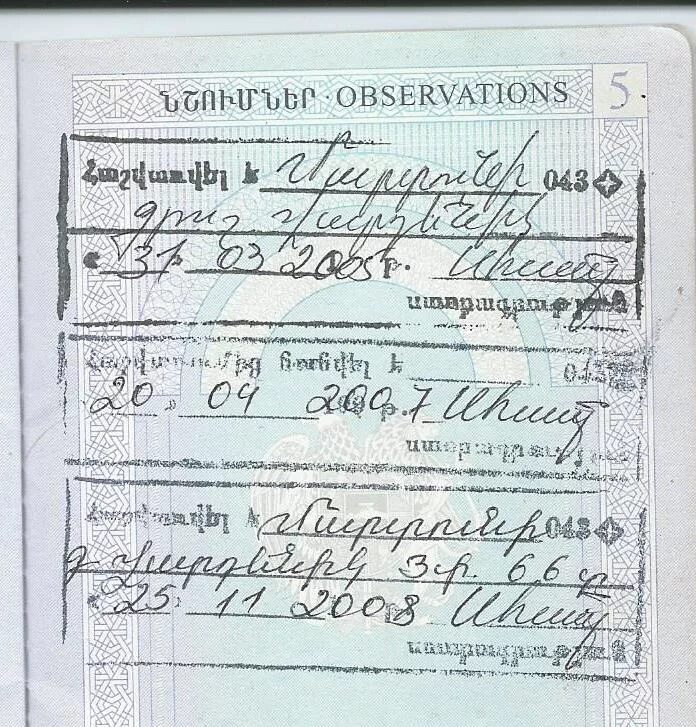 ՆՇՈՒՄՆԵՐ · OBSERVATIONS 5
Հաշվառվել է Մարտունի 043
գյուղ Վարդենիկ
« 31 » 03 2005 թ.
ստորագրություն
Հաշվառումից հանվել է
20 » 09 2007
ստորագրություն
Հաշվառվել է Մարտունի 043
գ Վարդենիկ 3 փ. 66
« 25 » 11 2008
ստորագրություն